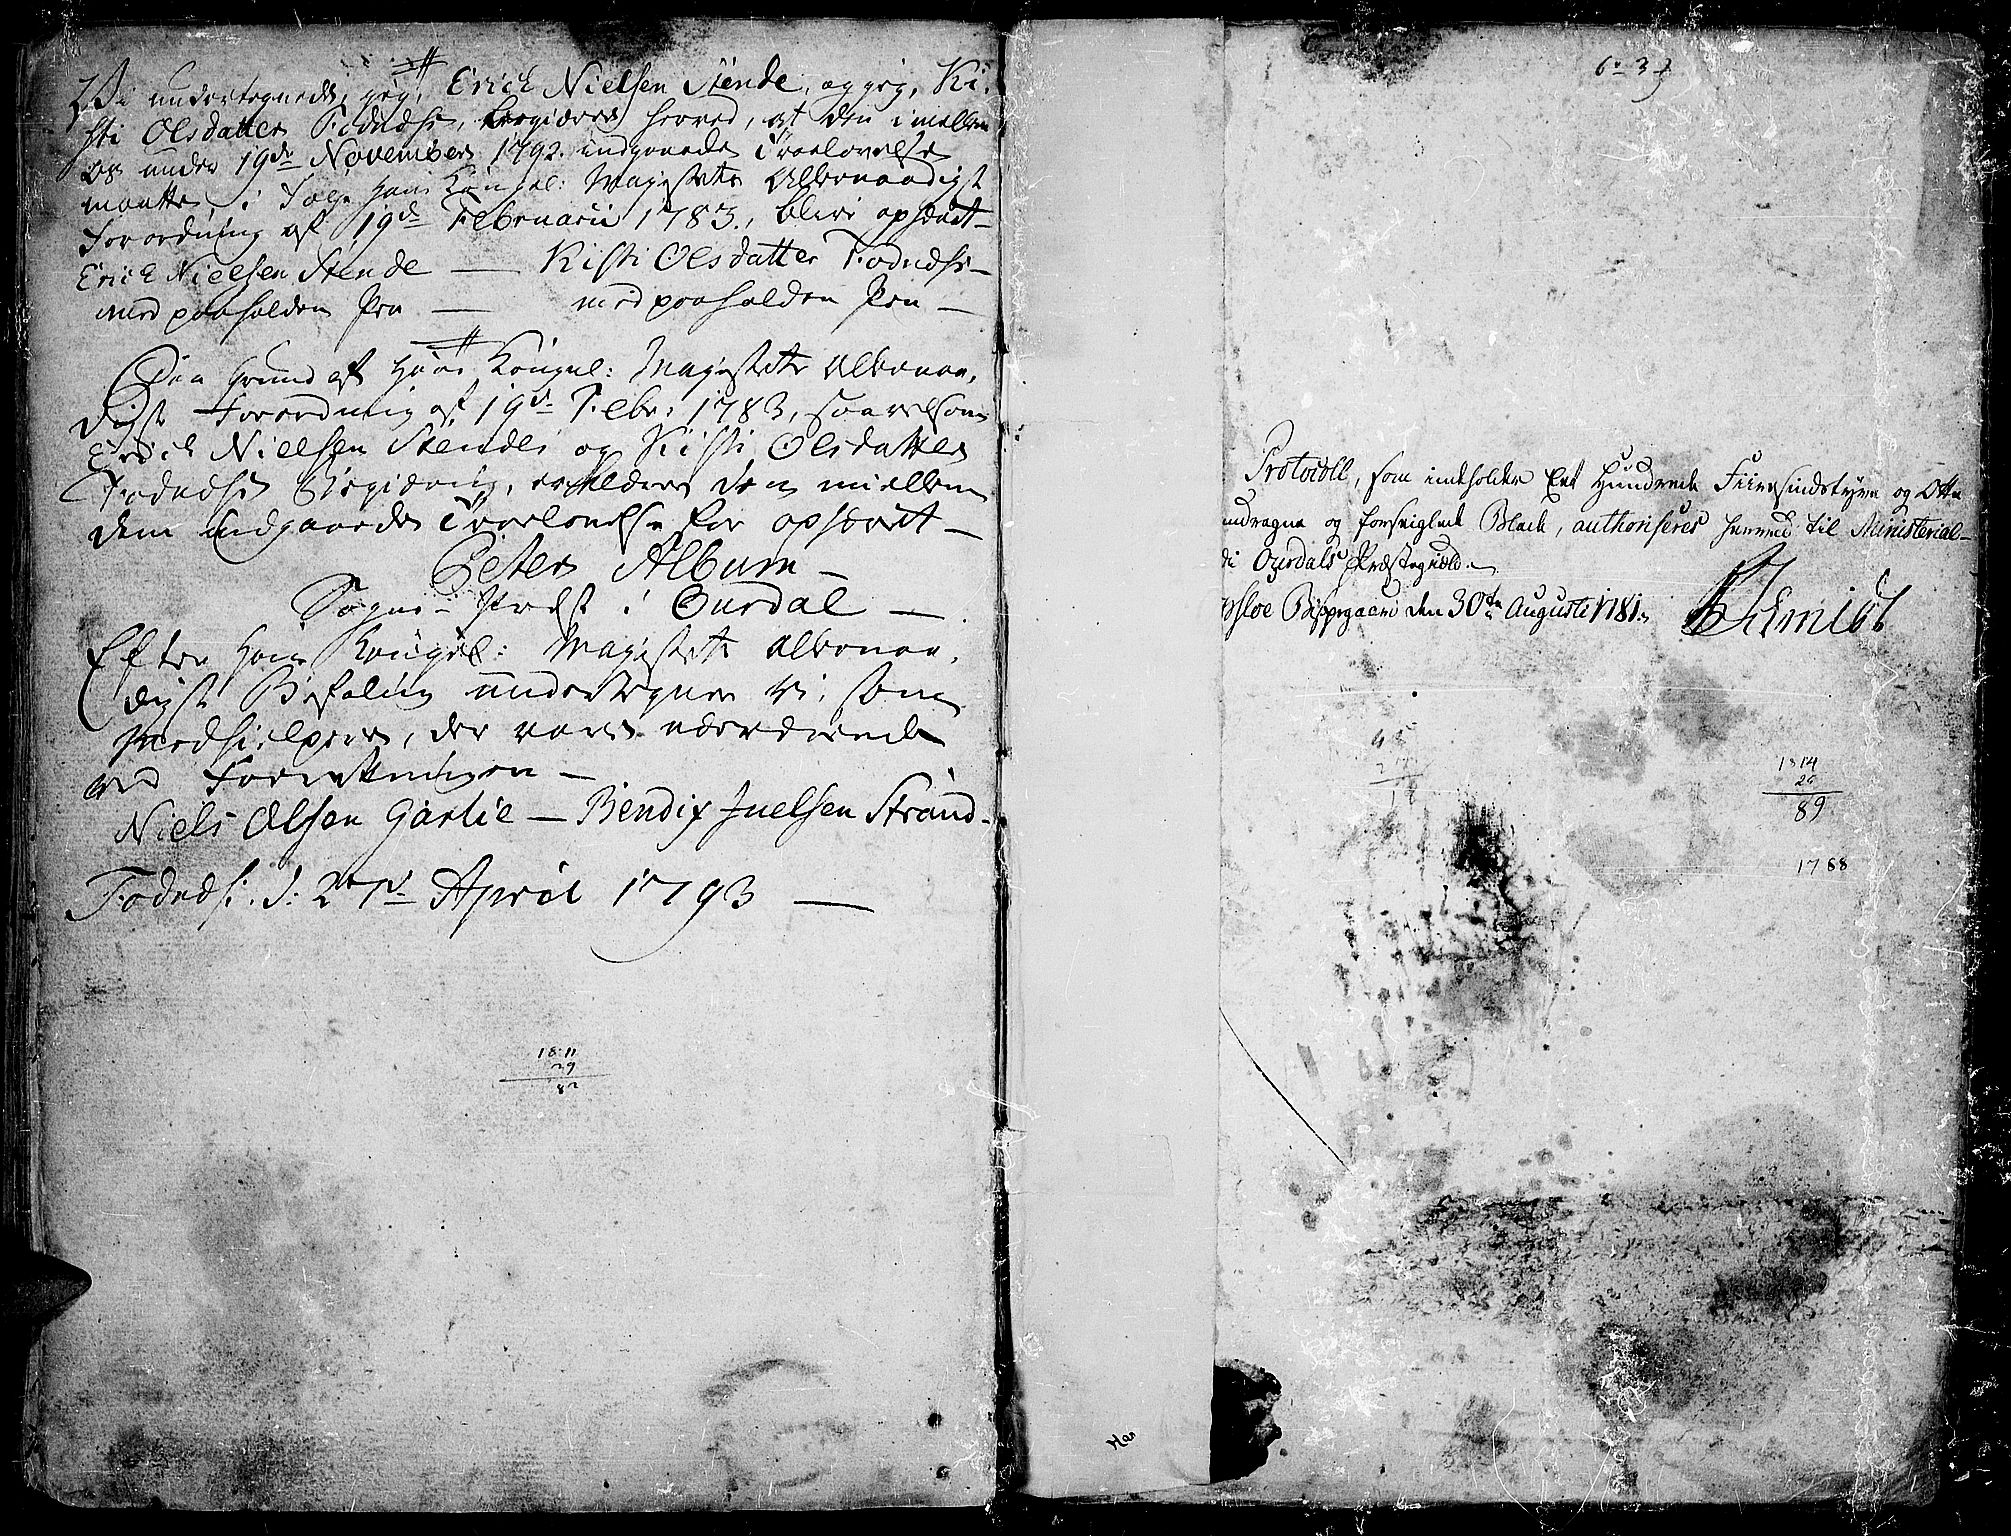 Vi undertegnede, jeg, Erich Nielsen Stende, og jeg, Ki-
sti Olsdatter Fodnæss, begiærer herved, at den imellem
os under 19de November 1792 indgaaede Troelovelse
maatte, i Følge Hans Kongel: Majestets Allernaadigst
Forordning af 19de Februarii 1783, blive ophævet —
Erich Nielsen Stende — Kisti Olsdatter Fodnæss —
med paaholden Pen — med paaholden Pen —
Paa Grund af Hans Kongel: Majestets Allernaa-
digste Forordning af 19de Febr: 1783, saavelsom
Erich Nielsen Stendes og Kisti Olsdatter
Fodnæss Begiæring, erklæres den imellem
dem indgaaede Troelovelse for ophævet —
Peter Album —
Sogne-Præst i Ourdal —
Efter Hans Kongel: Majestets allernaa-
digst Befaling undertegner vi, som
Medhielpere, der vare nærværende
ved Forretningen —
Niels Olsen Garlie — Bendix Juelsen Strand.
Fodnæss. d: 27de April 1793 —
18 11
29
82
6 3
Protocoll, som indeholder Eet Hundrede Fiiresindstyve og Otte
ndragne og forseiglede Blade, authoriseres herved til Ministerial-
i Ourdals Præstegield.
sloe Bispegaard den 30te Augusti 1781.
Schmidt
1814
25
89
1788
Han